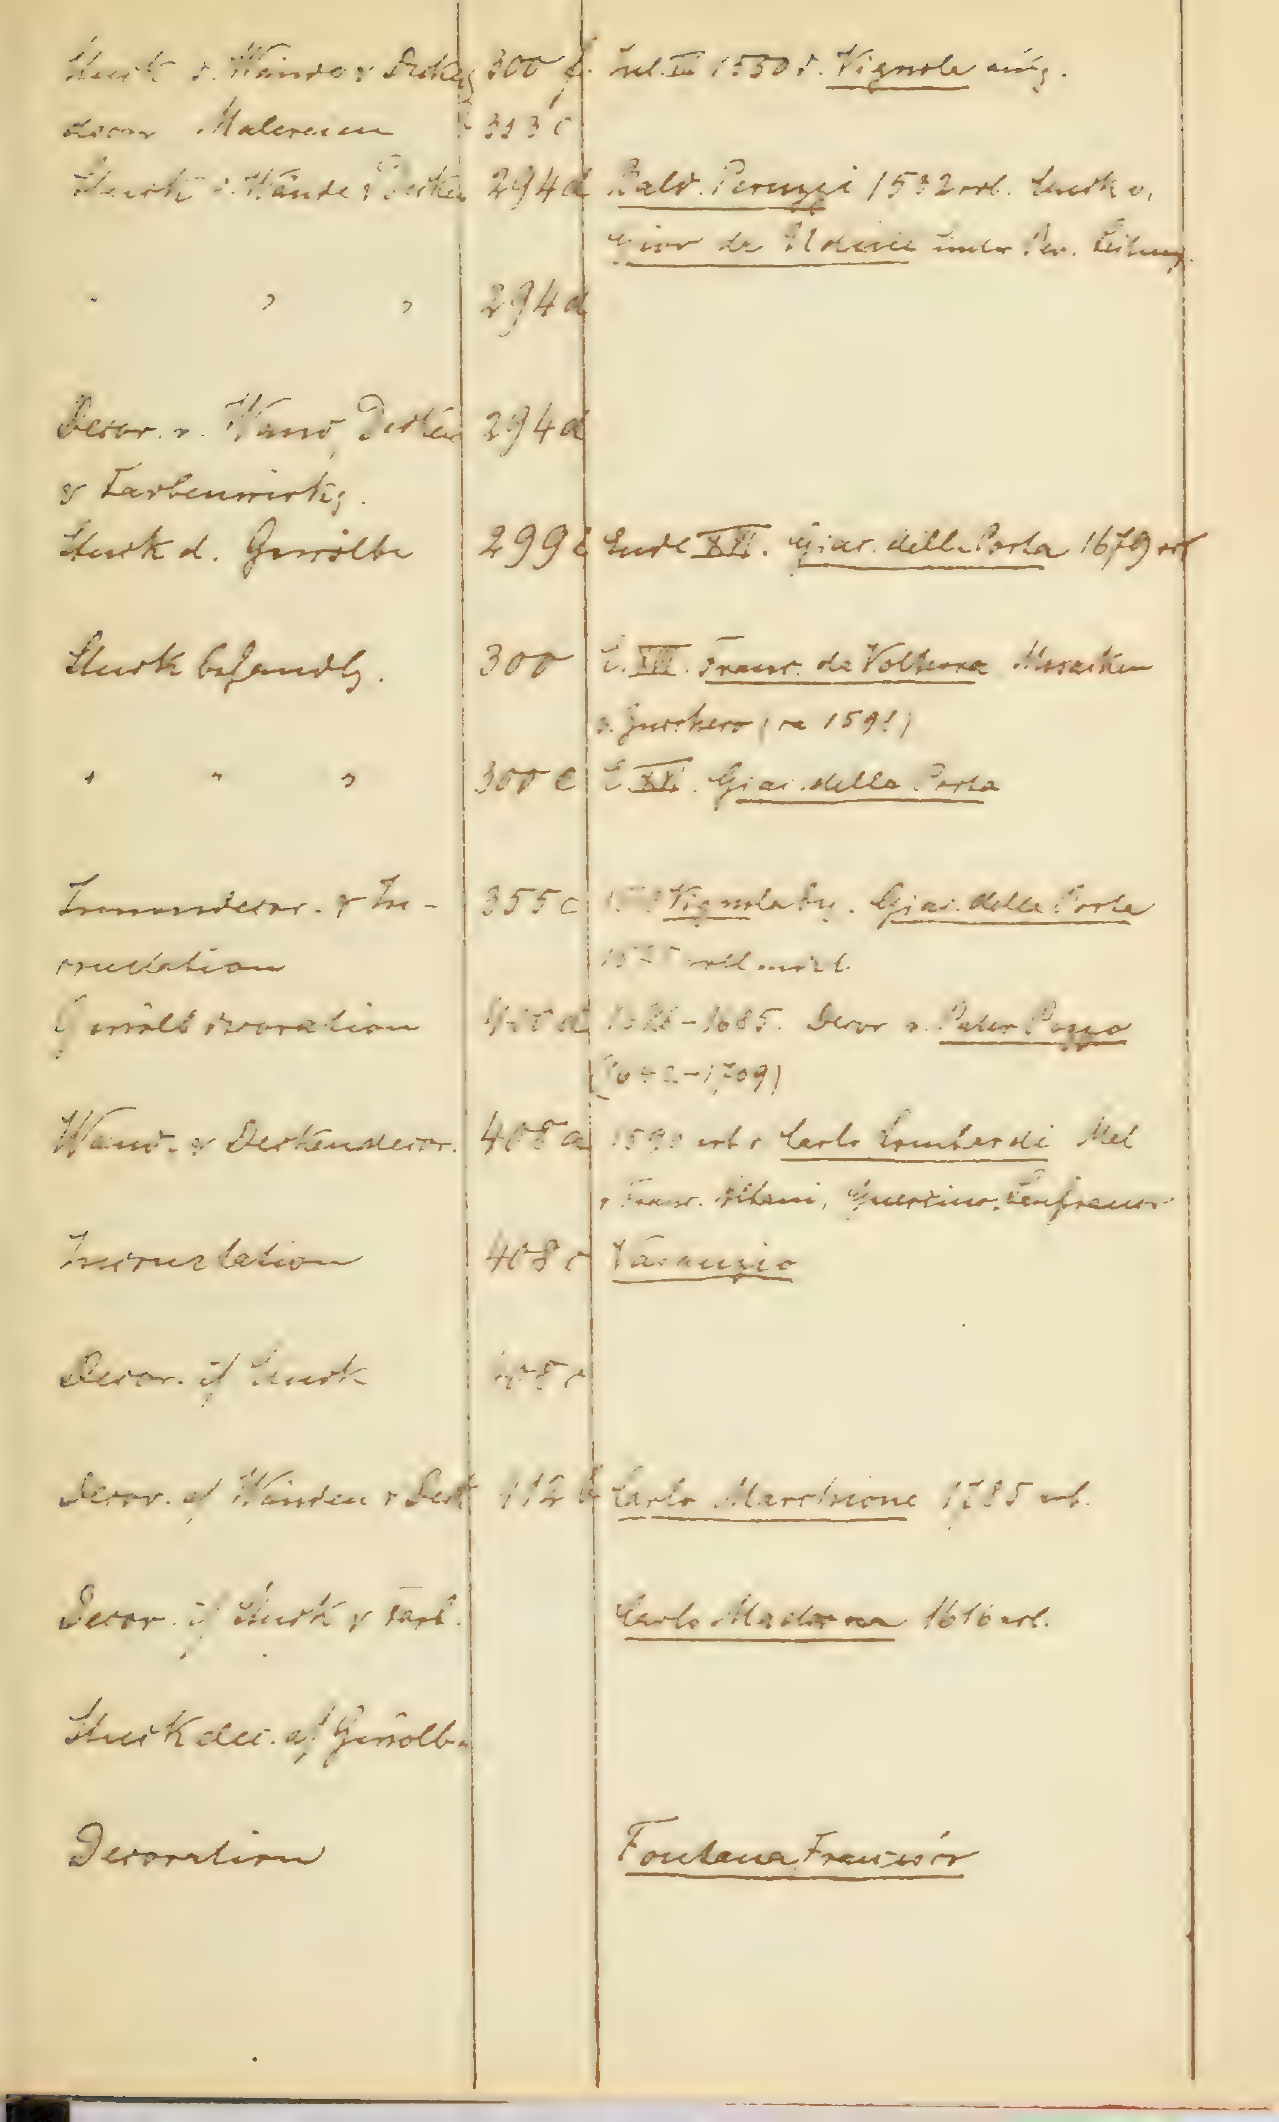 Stuck d. Wände & Decken 300 f. Jul. III 1550 d. Vignola
decor Malereien 313 c
Stuck d. Wände & Decken 294 d Bald. Peruzzi 1532 erb. Stuck v.
Giov da Udine unter Per. Leitung.
" " " 294 d
Decor. v. Wand, Decken 294 d
& Farbenwirkg.
Stuck d. Gewölbe 299 Ende XVI. Giac. della Porta 1679
Stuck behandlg. 300 E. XVI. Franc. da Volterra Mosaiken
v. Zucchero (ca 1591)
" " " 300 c E XVI. Giac. della Porta
Innendecor. & In- 355 c Vignola bg. Giac. della Porta
crustation
Gewölbdecoration 1626-1685. Decor v. Pater Pozzo
(1642-1709)
Wand- & Deckendecor. 408 a erb v Carlo Lombardi Mal
v Franc. Albani, Guercino, Lanfranco
Incrustation 408 c Vasanzio
Decor. if Stuck
Decor. af Wänden & Deck Carlo Marchione 1735 erb.
Decor. if Stuck & Farb. Carlo Maderna 1616 erb.
Stuckdec. af Gewölben
Decoration Fontana, Francesco